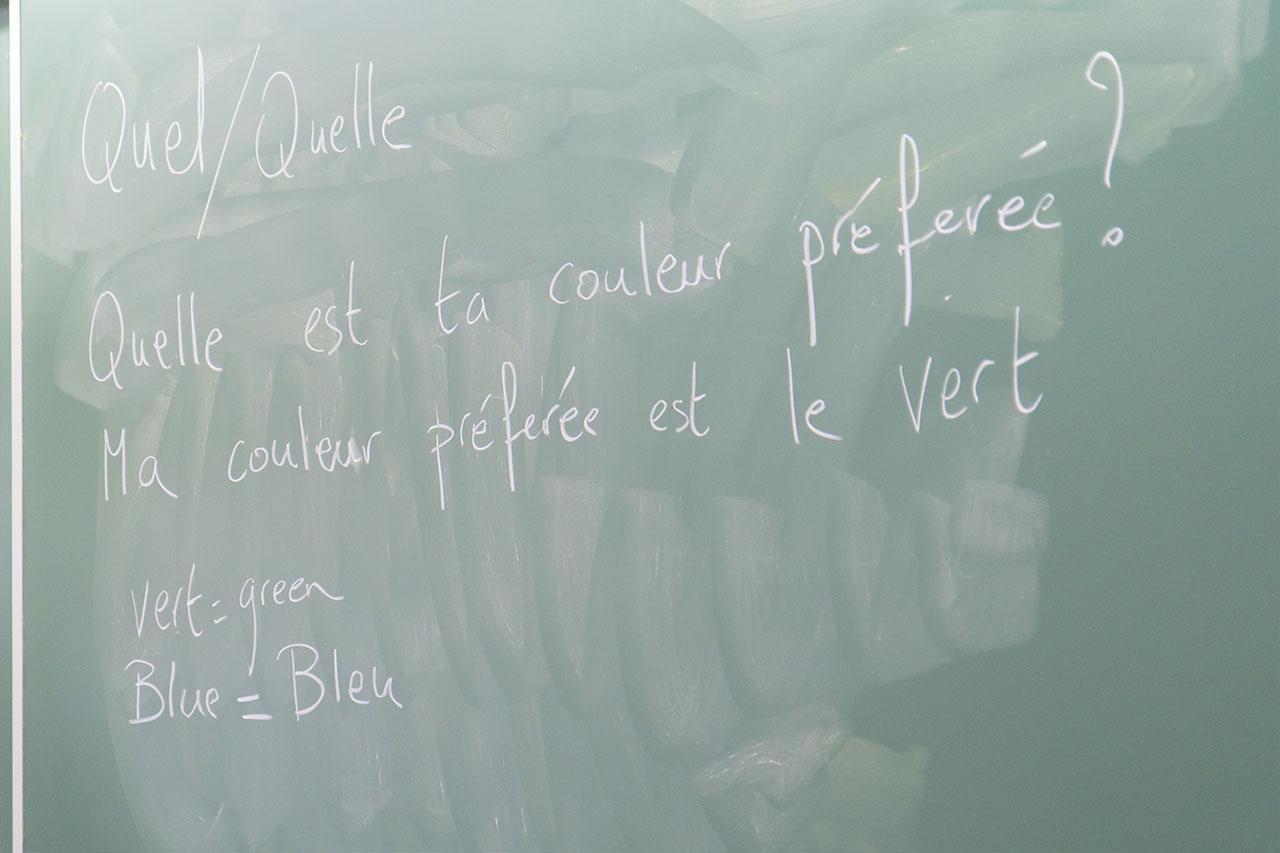 Quel/Quelle
Quelle est ta couleur préferée ?
Ma couleur préferée est le vert
vert = green
Blue = Bleu